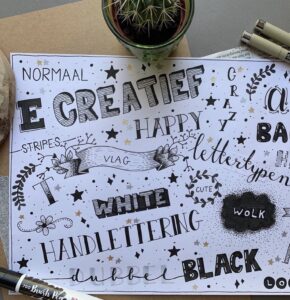 NORMAAL
E CREATIEF
CRAZY
a
STRIPES
HAPPY
BA
VLAG
lettertypen
T
CUTE
WHITE
WOLK
HANDLETTERING
dubbel BLACK